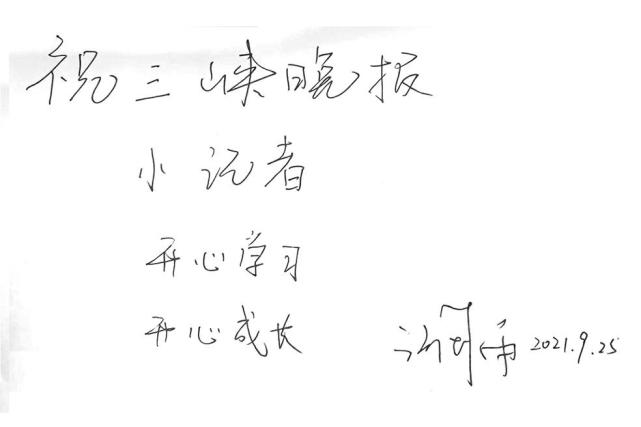 祝三峡晚报
小记者
开心学习
开心成长
2021.9.25